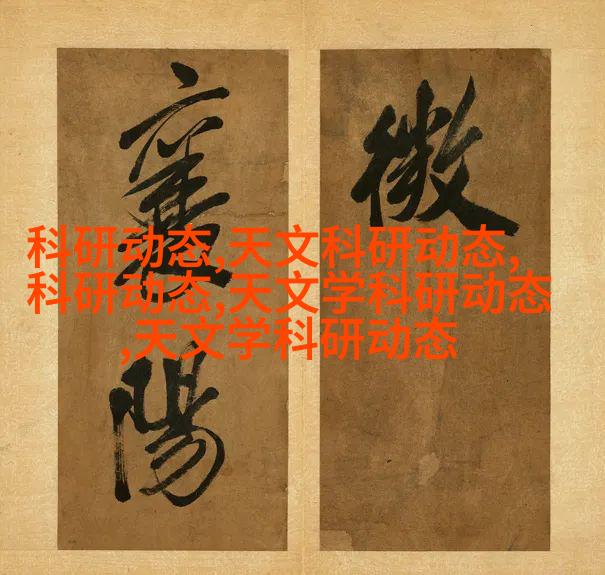 微
襄
陽
科研动态,天文科研动态,
科研动态,天文学科研动态
,天文学科研动态